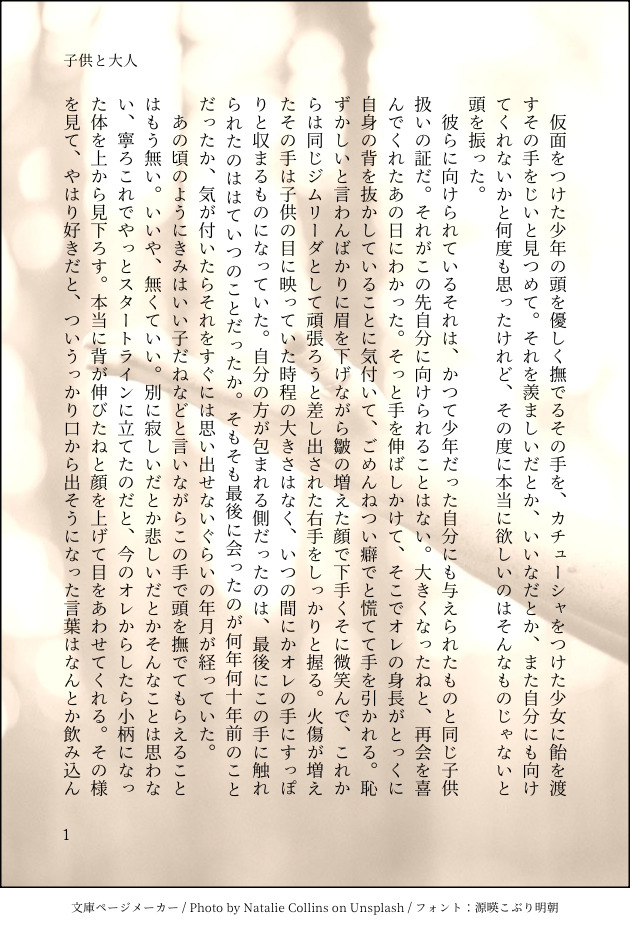 子供と大人
仮面をつけた少年の頭を優しく撫でるその手を、カチューシャをつけた少女に飴を渡
すその手をじいと見つめて。それを羨ましいだとか、いいなだとか、また自分にも向け
てくれないかと何度も思ったけれど、その度に本当に欲しいのはそんなものじゃないと
頭を振った。
彼らに向けられているそれは、かつて少年だった自分にも与えられたものと同じ子供
扱いの証だ。それがこの先自分に向けられることはない。大きくなったねと、再会を喜
んでくれたあの日にわかった。そっと手を伸ばしかけて、そこでオレの身長がとっくに
自身の背を抜かしていることに気付いて、ごめんねつい癖でと慌てて手を引かれる。恥
ずかしいと言わんばかりに眉を下げながら皺の増えた顔で下手くそに微笑んで、これか
らは同じジムリーダとして頑張ろうと差し出された右手をしっかりと握る。火傷が増え
たその手は子供の目に映っていた時程の大きさはなく、いつの間にかオレの手にすっぽ
りと収まるものになっていた。自分の方が包まれる側だったのは、最後にこの手に触れ
られたのははていつのことだったか。そもそも最後に会ったのが何年何十年前のこと
だったか、気が付いたらそれをすぐには思い出せないぐらいの年月が経っていた。
あの頃のようにきみはいい子だねなどと言いながらこの手で頭を撫でてもらえること
はもう無い。いいや、無くていい。別に寂しいだとか悲しいだとかそんなことは思わな
い、寧ろこれでやっとスタートラインに立てたのだと、今のオレからしたら小柄になっ
た体を上から見下ろす。本当に背が伸びたねと顔を上げて目をあわせてくれる。その様
を見て、やはり好きだと、ついうっかり口から出そうになった言葉はなんとか飲み込ん
1
文庫ページメーカー / Photo by Natalie Collins on Unsplash / フォント：源暎こぶり明朝